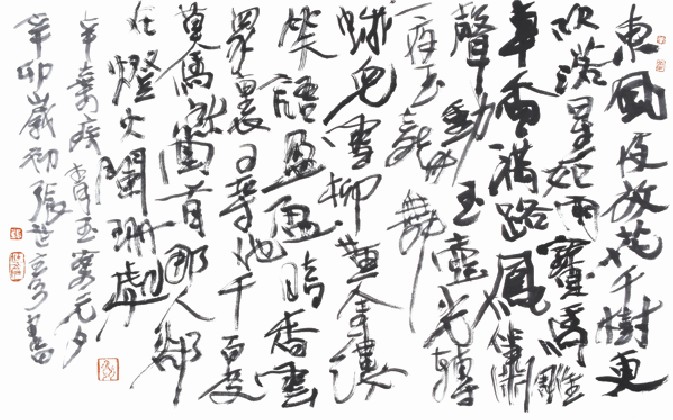 東風夜放花千樹更
吹落星如雨寶馬雕
車香滿路鳳簫
聲動玉壺光轉
一夜龍舞
蛾兒雪柳黃金縷
笑語盈盈暗香
眾裏尋他千百度
驀然回首那人卻
在燈火闌珊處
辛棄疾青玉案元夕
辛卯歲初張世書